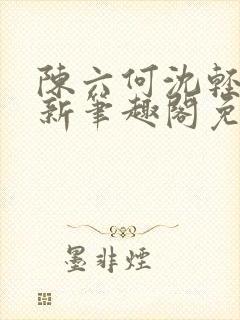 陳六何沈輕
新筆趣閣免
墨非煙